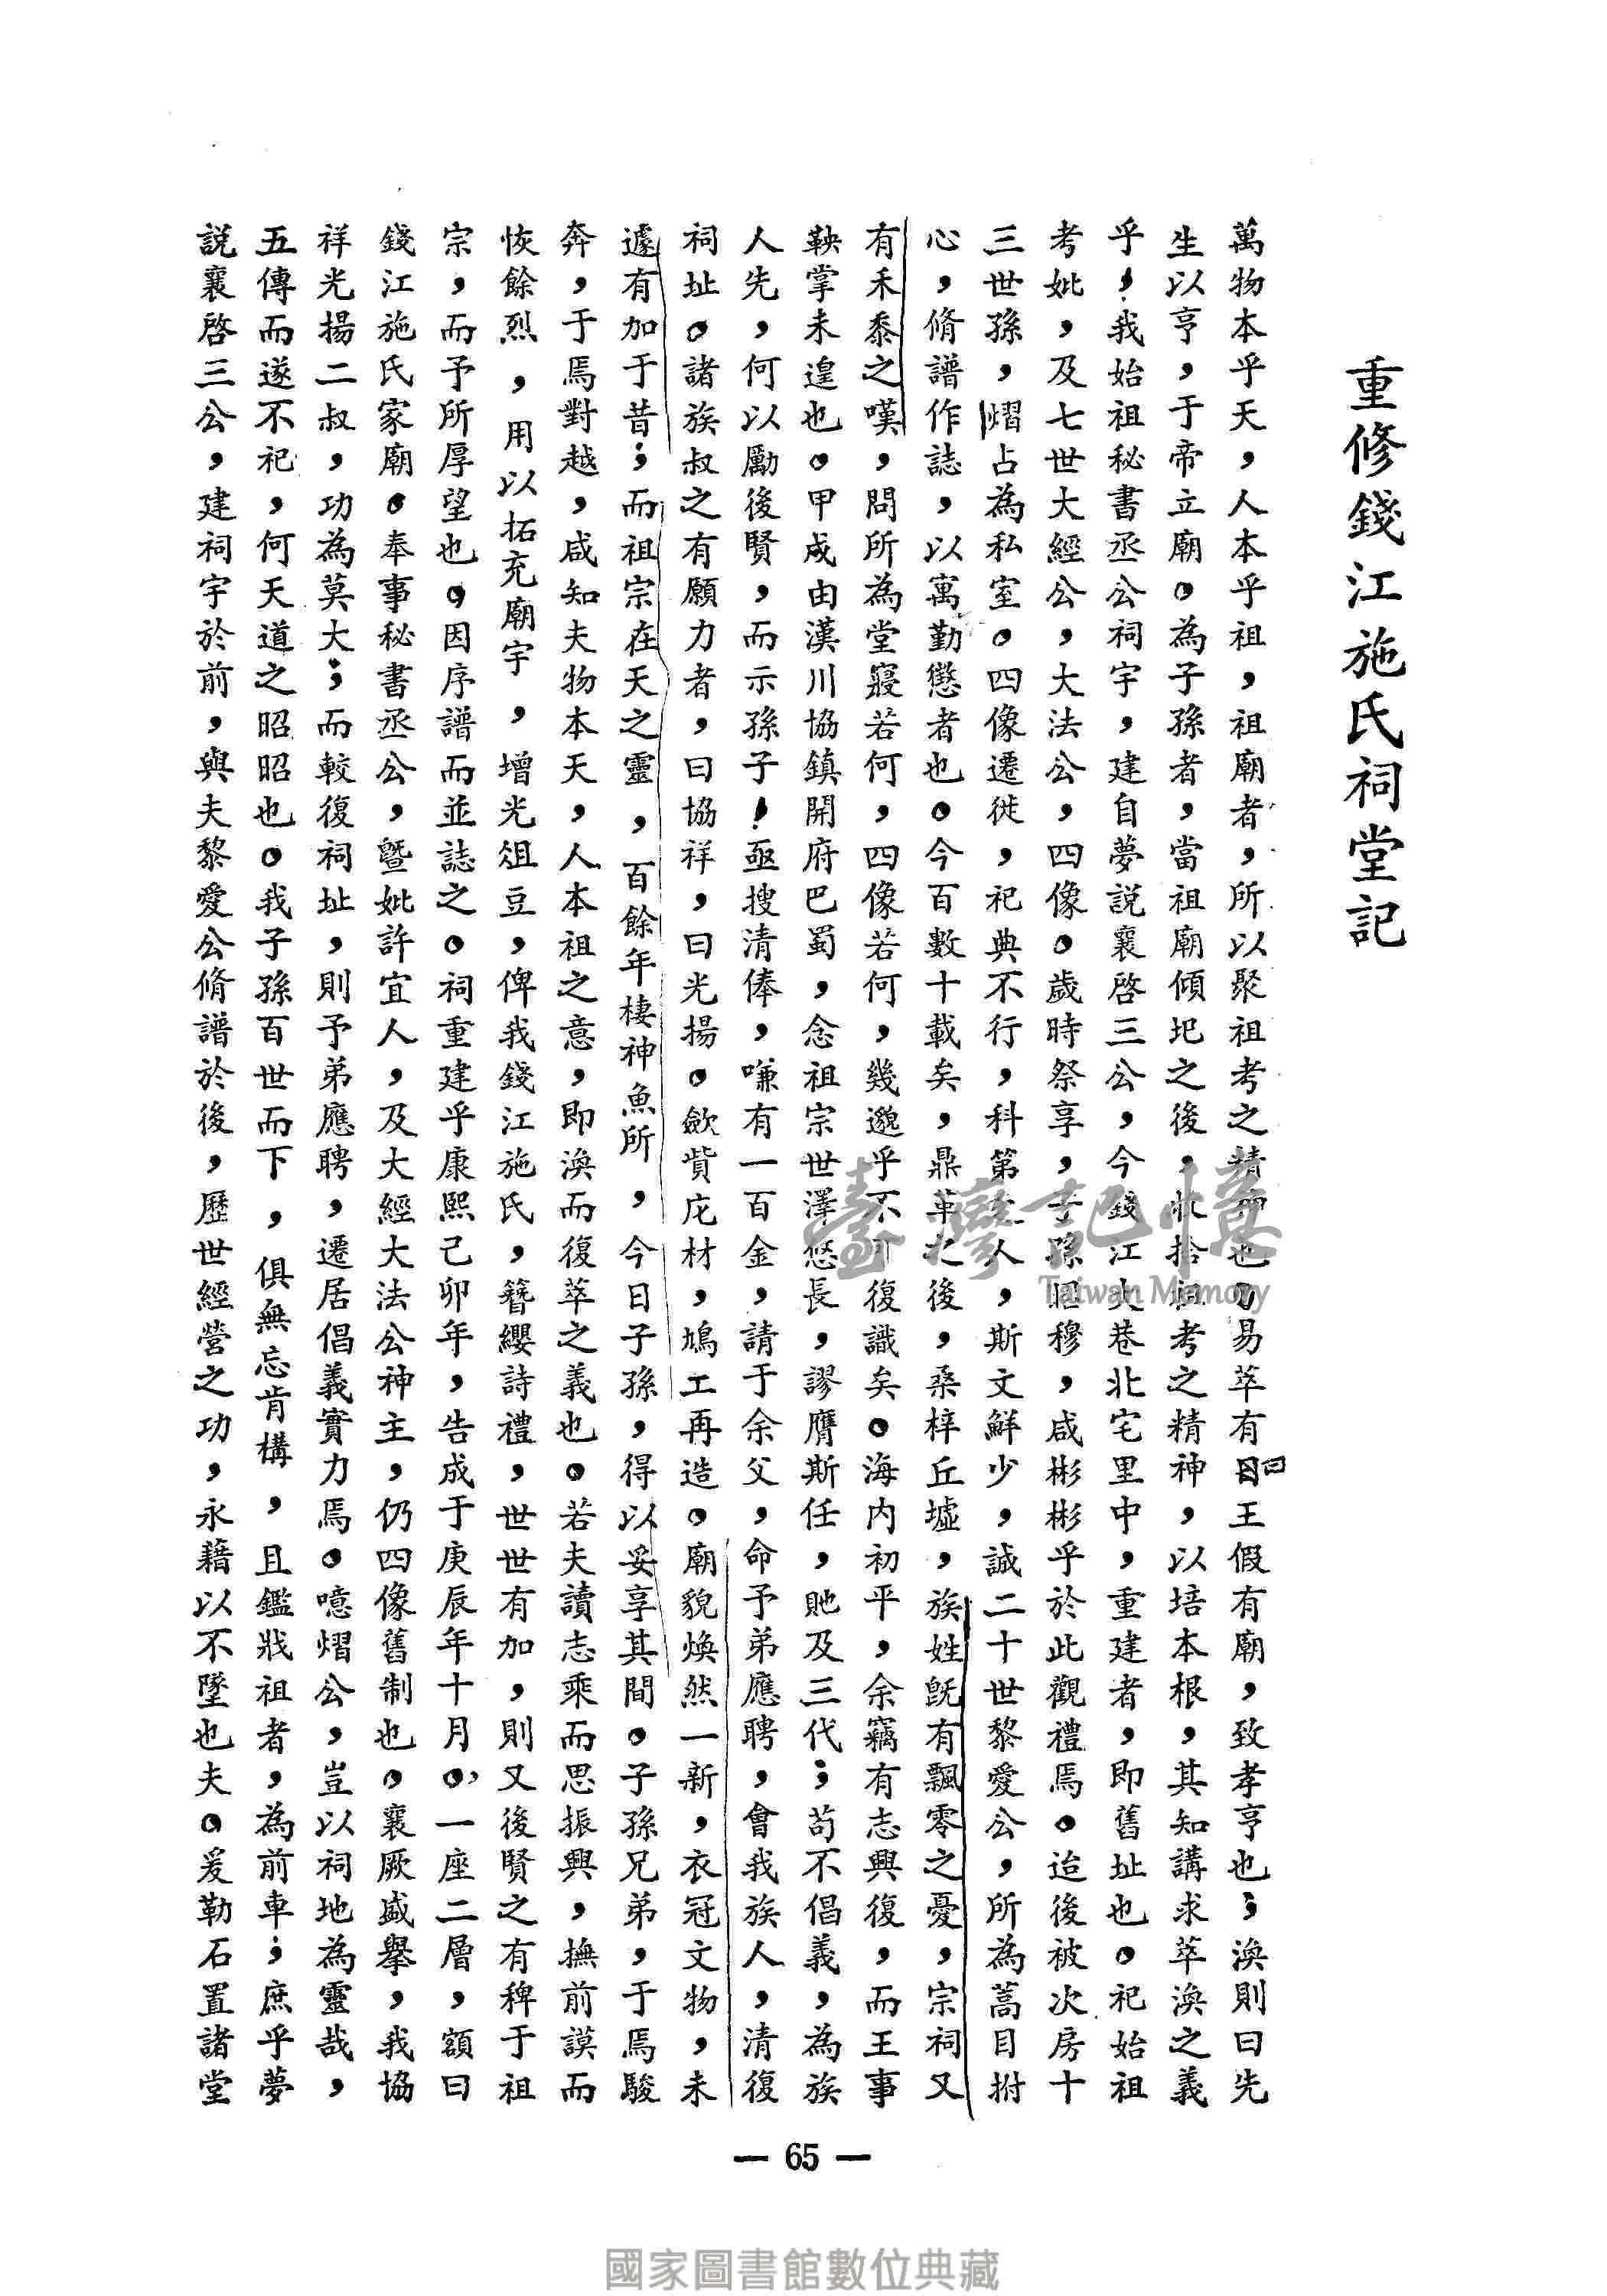 重修錢江施氏祠堂記
萬物本乎天，人本乎祖，祖廟者，所以聚祖考之精神也。易萃有曰王假有廟，致孝亨也；渙則曰先
生以亨，于帝立廟。為子孫者，當祖廟傾圯之後，收拾祖考之精神，以培本根，其知講求萃渙之義
乎！我始祖秘書丞公祠宇，建自夢説襄啓三公，今錢江大巷北宅里中，重建者，即舊址也。祀始祖
考妣，及七世大經公，大法公，四像。歲時祭享，子孫昭穆，咸彬彬乎於此觀禮焉。迨後被次房十
三世孫，熠占為私室。四像遷徙，祀典不行，科第人，斯文鮮少，誠二十世黎愛公，所為蒿目拊
心，脩譜作誌，以寓勤懲者也。今百數十載矣，鼎革之後，桑梓丘墟，族姓旣有飄零之憂，宗祠又
有禾黍之嘆，問所為堂寢若何，四像若何，幾邈乎不可復識矣。海内初平，余竊有志興復，而王事
鞅掌未遑也。甲戌由漢川協鎮開府巴蜀，念祖宗世澤悠長，謬膺斯任，貤及三代；苟不倡義，為族
人先，何以勵後賢，而示孫子！亟搜清俸，嗛有一百金，請于余父，命予弟應聘，會我族人，清復
祠址。諸族叔之有願力者，曰協祥，曰光揚。歛貲庀材，鳩工再造。廟貌煥然一新，衣冠文物，未
遽有加于昔；而祖宗在天之靈，百餘年棲神魚所，今日子孫，得以妥享其間。子孫兄弟，于焉駿
奔，于焉對越，咸知夫物本天，人本祖之意，即渙而復萃之義也。若夫讀志乘而思振興，撫前謨而
恢餘烈，用以拓充廟宇，增光俎豆，俾我錢江施氏，簪纓詩禮，世世有加，則又後賢之有稗于祖
宗，而予所厚望也。因序譜而並誌之。祠重建乎康熙己卯年，告成于庚辰年十月。一座二層，額曰
錢江施氏家廟。奉事秘書丞公，曁妣許宜人，及大經大法公神主，仍四像舊制也。襄厥盛舉，我協
祥光揚二叔，功為莫大；而較復祠址，則予弟應聘，遷居倡義實力焉。噫熠公，豈以祠地為靈哉，
五傳而遂不祀，何天道之昭昭也。我子孫百世而下，俱無忘肯構，且鑑戕祖者，為前車；庶乎夢
説襄啓三公，建祠宇於前，與夫黎愛公脩譜於後，歷世經營之功，永藉以不墜也夫。爰勒石置諸堂
— 65 —
臺灣記憶
Taiwan Memory
國家圖書館數位典藏